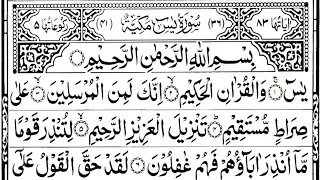 اٰیاتها ٨٣ (٣٦) سُوْرَةُ یٰسٓ مَكِّیَّةٌ (٤١) رُكُوْعَاتُهَا ٥
بِسْمِ اللّٰهِ الرَّحْمٰنِ الرَّحِیْمِ
یٰسٓ ۚ۝١ وَالْقُرْاٰنِ الْحَكِیْمِ ۙ۝٢ اِنَّكَ لَمِنَ الْمُرْسَلِیْنَ ۙ۝٣ عَلٰی
صِرَاطٍ مُّسْتَقِیْمٍ ؕ۝٤ تَنْزِیْلَ الْعَزِیْزِ الرَّحِیْمِ ۙ۝٥ لِتُنْذِرَ قَوْمًا
مَّاۤ اُنْذِرَ اٰبَآؤُهُمْ فَهُمْ غٰفِلُوْنَ ۝٦ لَقَدْ حَقَّ الْقَوْلُ عَلٰۤی